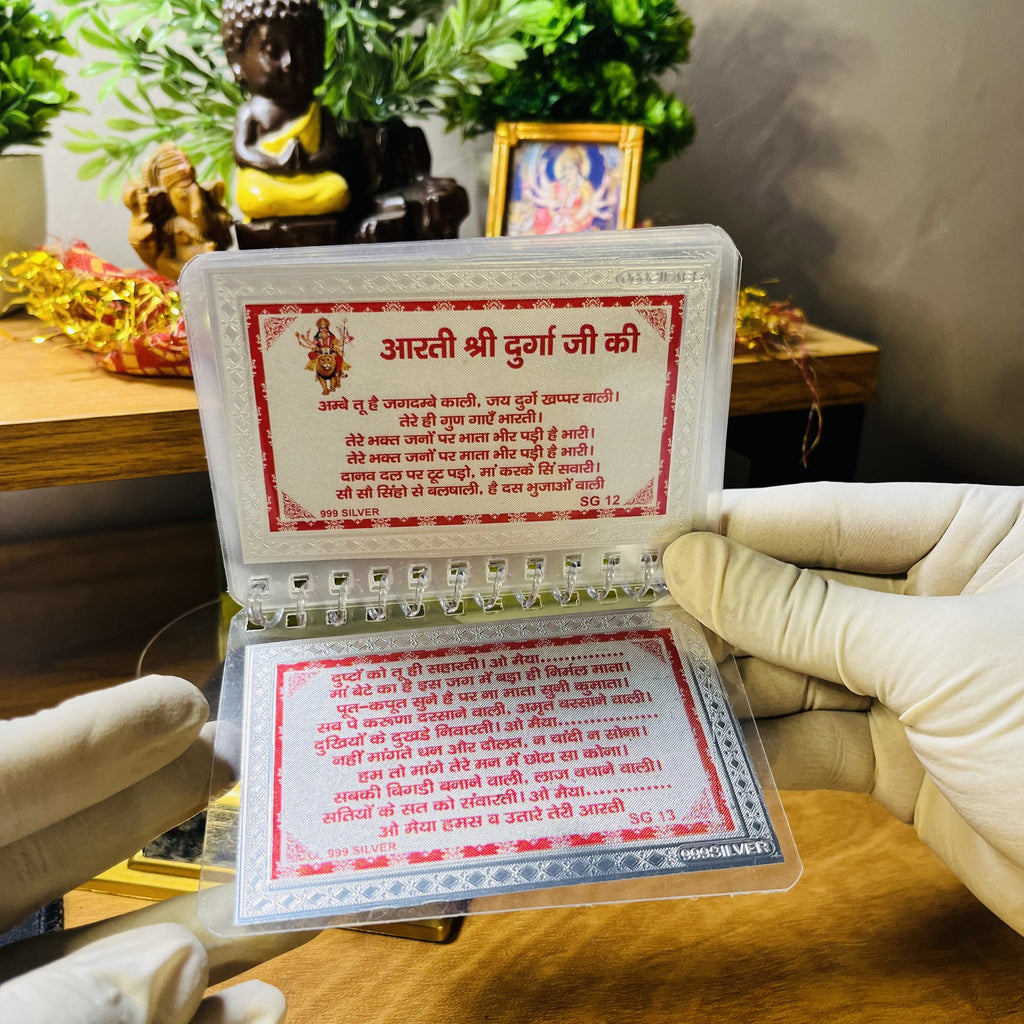 999SILVER
आरती श्री दुर्गा जी की
अम्बे तू है जगदम्बे काली, जय दुर्गे खप्पर वाली।
तेरे ही गुण गाएँ भारती।
तेरे भक्त जनों पर भाता भीर पड़ी है भारी।
तेरे भक्त जनों पर माता भीर पड़ी है भारी।
दानव दल पर टूट पड़ो, मां करके सिं सवारी।
सौ सौ सिंहो से बलषाली, है दस भुजाओं वाली
SG 12
999 SILVER
दुष्टों को तू ही सहारती। ओ मैया.............
मां बेटे का है इस जग में बड़ा ही निर्मल माता।
पूत-कपूत सुने है पर ना माता सुनी कुमाता।
सब पे करूणा दरसाने वाली, अमृत बरसाने वाली।
दुखियों के दुखडे निवारती। ओ मैया...............
नहीं मांगते धन और दौलत, न चांदी न सोना।
हम तो मांगे तेरे मन में छोटा सा कोना।
सबकी बिगडी बनाने वाली, लाज बचाने वाली।
सतियों के सत को संवारती। ओ मैया.............
ओ मैया हमस ब उतारे तेरी आरती
SG 13
999 SILVER
999SILVER